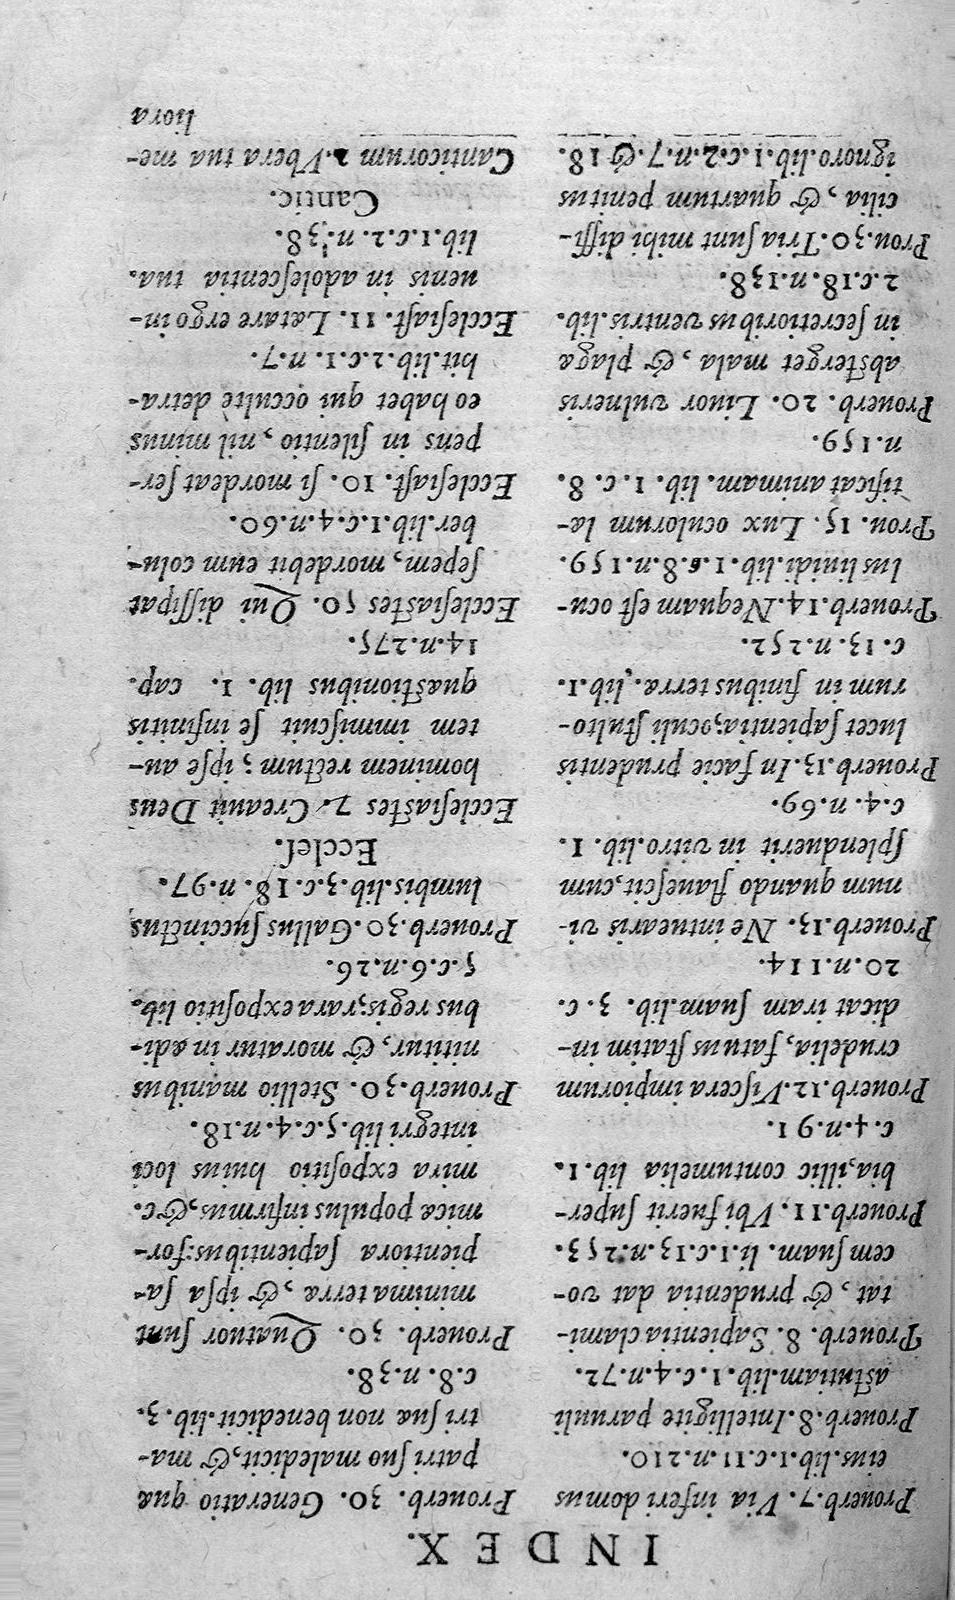 INDEX.
Prouerb. 7. Via inferi domus
eius. lib. 1. c. 11. n. 210.
Prouerb. 8. Intelligite paruuli
astutiam. lib. 1. c. 4. n. 72.
Prouerb. 8. Sapientia clami-
tat, & prudentia dat vo-
cem suam. li. 1. c. 13. n. 253.
Prouerb. 11. Vbi fuerit super-
bia, illic contumelia lib. 1.
c. 4. n. 91.
Prouerb. 12. Viscera impiorum
crudelia, fatuus statim in-
dicat iram suam. lib. 3. c.
20. n. 114.
Prouerb. 13. Ne intuearis vi-
num quando flauescit, cum
splenduerit in vitro. lib. 1.
c. 4. n. 69.
Prouerb. 13. In facie prudentis
lucet sapientia; oculi stulto-
rum in finibus terræ. lib. 1.
c. 13. n. 252.
Prouerb. 14. Nequam est ocu-
lus liuidi. lib. 1. c. 8. n. 159.
Prou. 15. Lux oculorum læ-
tificat animam. lib. 1. c. 8.
n. 159.
Prouerb. 20. Liuor vulneris
absterget mala, & plagæ
in secretioribus ventris. lib.
2. c. 18. n. 138.
Prou. 30. Tria sunt mihi diffi-
cilia, & quartum penitus
ignoro. lib. 1. c. 2. n. 7. & 18.
Prouerb. 30. Generatio quæ
patri suo maledicit, & ma-
tri suæ non benedicit. lib. 3.
c. 8. n. 38.
Prouerb. 30. Quatuor sunt
minima terræ, & ipsa sa-
pientiora sapientibus: for-
mica populus infirmus, &c.
mira expositio huius loci
integri lib. 5. c. 4. n. 18.
Prouerb. 30. Stellio manibus
nititur, & moratur in ædi-
bus regis; rara expositio lib.
5. c. 6. n. 26.
Prouerb. 30. Gallus succinctus
lumbis. lib. 3. c. 18. n. 97.
Ecclef.
Ecclesiastes 7. Creauit Deus
hominem rectum; ipse au-
tem immiscuit se infinitis
quæstionibus lib. 1. cap.
14. n. 275.
Ecclesiastes 50. Qui dissipat
sepem, mordebit eum colu-
ber. lib. 1. c. 4. n. 60.
Ecclesiast. 10. si mordeat ser-
pens in silentio, nil minus
eo habet qui occultè detra-
hit. lib. 2. c. 1. n. 7.
Ecclesiast. 11. Lætare ergo in-
uenis in adolescentia tua.
lib. 1. c. 2. n. 38.
Cantic.
Canticorum 1. Vbera tua me-
liora